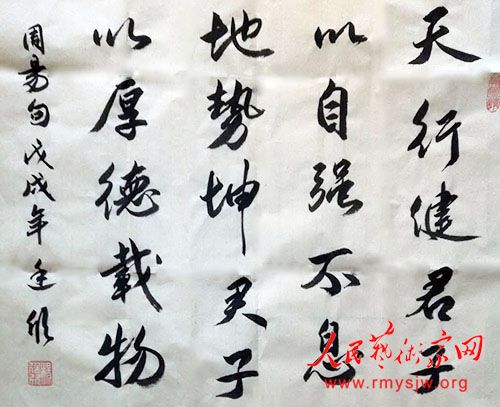 天行健君子
以自强不息
地势坤君子
以厚德載物
周易句戊戌年
人民藝術家网
www.rmysjw.org